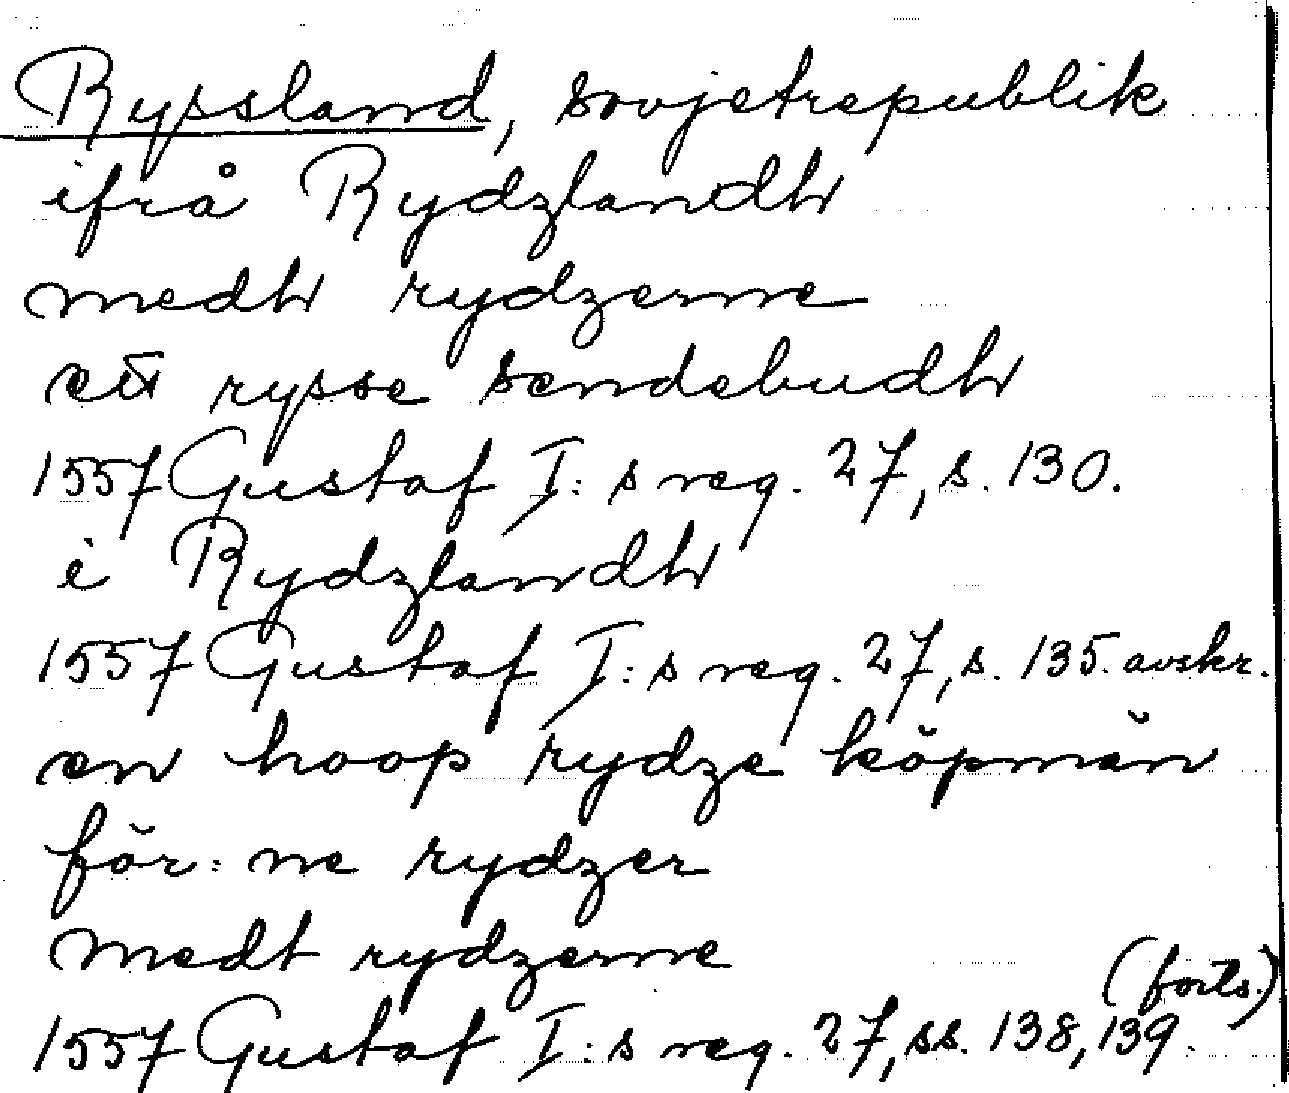 Ryssland, sovjetrepublik
ifrå Rydzlandh
medh rydzerne
ett rysse sendebudh
1557 Gustaf I:s reg. 27, s. 130.
i Rydzlandh
1557 Gustaf I:s reg. 27, s. 135. avskr.
en hoop rydze köpmän
för:ne rydzer
medt rydzerne
(forts.)
1557 Gustaf I:s reg. 27, ss. 138, 139.